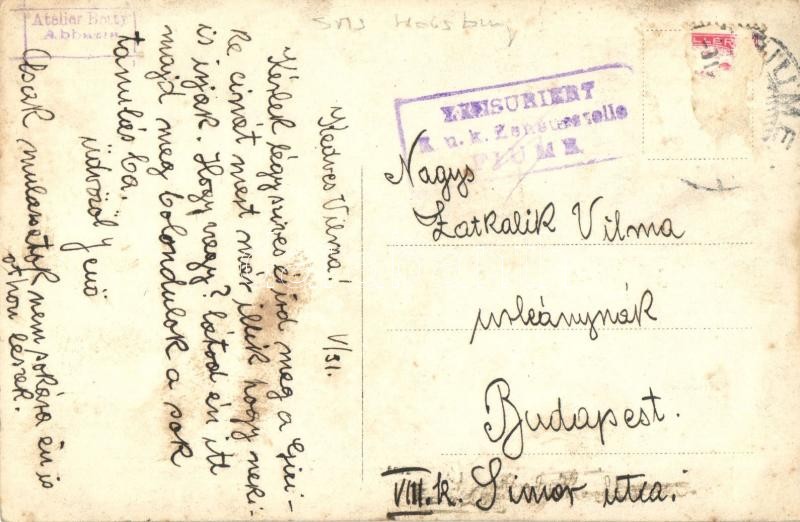 Atelier Betty
Abbazia
SMS Habsburg
ZENSURIERT
K. u. k. Zensurstelle
FIUME
FIUME
Nagys
Zatkalik Vilma
urleánynák
Budapest.
VIII. k. Simor utca.
V/31.
Kedves Vilma!
Kérlek légy szives és ird meg a Gizi-
ke cimét mert már illik hogy neki-
is irjak. Hogy vagy? látod én itt
majd meg bolondulok a sok
tanulásba.
üdvözöl Jenő
Csak mulassatok nem sokára én is
othon leszek.